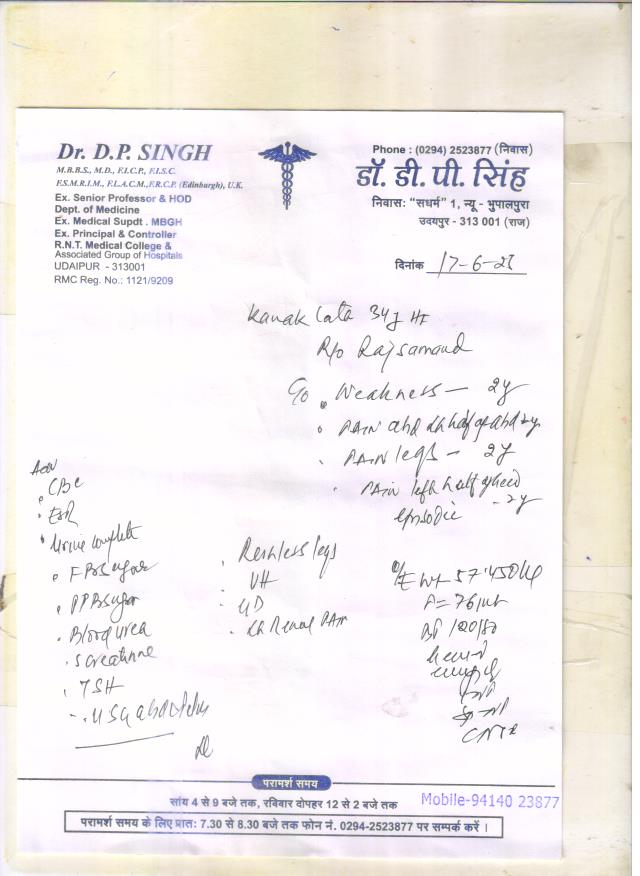 Dr. D.P. SINGH
M.B.B.S., M.D., F.I.C.P., F.I.S.C.
F.S.M.R.I.M., F.L.A.C.M.,F.R.C.P. (Edinburgh), U.K.
Ex. Senior Professor & HOD
Dept. of Medicine
Ex. Medical Supdt . MBGH
Ex. Principal & Controller
R.N.T. Medical College &
Associated Group of Hospitals
UDAIPUR - 313001
RMC Reg. No.: 1121/9209
Phone : (0294) 2523877 (निवास)
डॉ. डी. पी. सिंह
निवास: "सधर्म" 1, न्यू - भुपालपुरा
उदयपुर - 313 001 (राज)
दिनांक 17-6-
Kanak Lata 34y
R/o Rajsamand
C/o Weakness - 2y
PAIN abd half of abd 2y
PAIN legs - 2y
PAIN left half of head
episodic - 2y
Adv
CBC
ESR
Urine complete
F B Sugar
PP B Sugar
Blood urea
S creatinine
TSH
USG abd
Restless legs
VH
Renal PAIN
O/E Wt 57.450 Kg
P= 76/mt
BP 120/80
परामर्श समय
सांय 4 से 9 बजे तक, रविवार दोपहर 12 से 2 बजे तक
Mobile-94140 23877
परामर्श समय के लिए प्रातः 7.30 से 8.30 बजे तक फोन नं. 0294-2523877 पर सम्पर्क करें ।